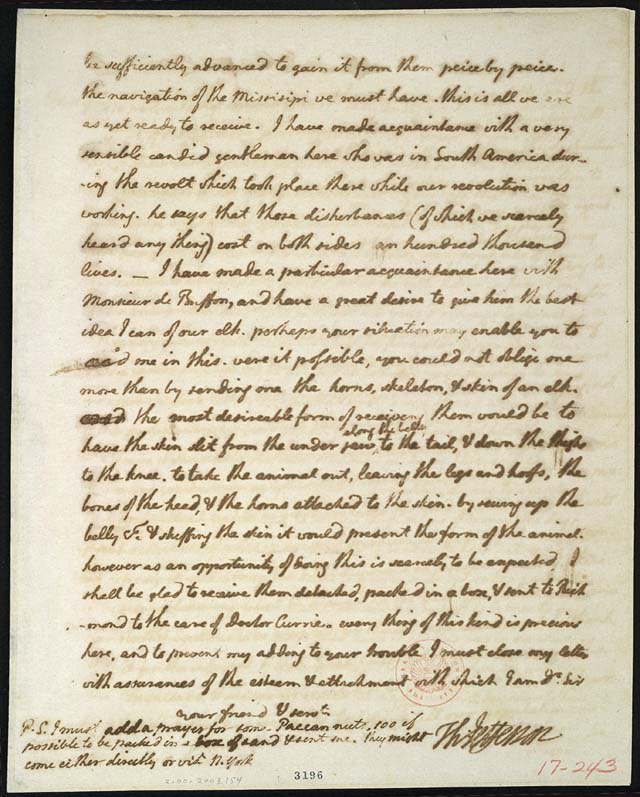 be sufficiently advanced to gain it from them peice by peice.
the navigation of the Missisipi we must have. this is all we are
as yet ready to receive. I have made acquaintance with a very
sensible candid gentleman here who was in South America dur-
-ing the revolt which took place there while our revolution was
working. he says that those disturbances (of which we scarcely
heard any thing) cost on both sides an hundred thousand
lives. — I have made a particular acquaintance here with
Monsieur de Buffon, and have a great desire to give him the best
idea I can of our elk. perhaps your situation may enable you to
aid me in this. were it possible, you could not oblige me
more than by sending me the horns, skeleton, & skin of an elk.
the most desireable form of receiving them would be to
have the skin slit from the under jaw along the belly to the tail, & down the thigh
to the knee. to take the animal out, leaving the legs and hoofs, the
bones of the head, & the horns attached to the skin. by sewing up the
belly &c. & stuffing the skin it would present the form of the animal.
however as an opportunity of doing this is scarcely to be expected, I
shall be glad to receive them detached, packed in a box, & sent to Rich
-mond to the care of Doctor Currie. every thing of this kind is precious
here. and to prevent my adding to your trouble I must close my letter
with assurances of the esteem & attachment with which I am Dr. Sir
your friend & servt.
Th: Jefferson
P.S. I must add a prayer for some Paccan nuts, 100 if
possible to be packed in a box of sand & sent me. they might
come either directly or viâ N. York
2.00.2003.154
3196
17-243